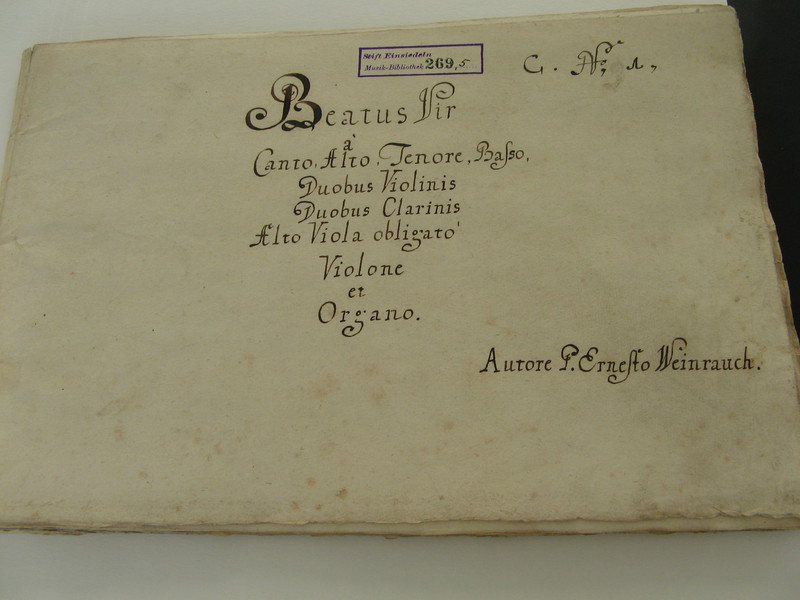 Stift Einsiedeln
Musik-Bibliothek 269,5
C. No. 1,
Beatus Vir
à
Canto, Alto, Tenore, Baſso,
Duobus Violinis
Duobus Clarinis
Alto Viola obligato
Violone
et
Organo.
Autore P. Erneſto Weinrauch.